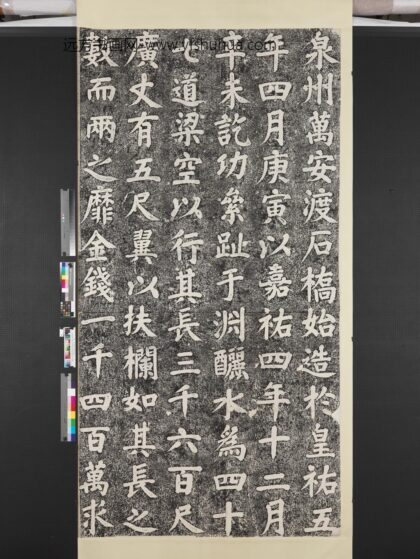 www.yishuhua.com
泉州萬安渡石橋始造於皇祐五
年四月庚寅以嘉祐四年十二月
辛未訖功絫趾于淵釃水為四十
七道梁空以行其長三千六百尺
廣丈有五尺翼以扶欄如其長之
數而兩之靡金錢一千四百萬求